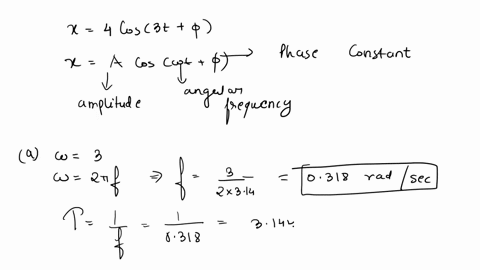 x = 4 Cos(3t + φ)
x = A cos (ωt + φ) → Phase Constant
amplitude
angular frequency
(a) ω = 3
ω = 2πf ⇒ f = 3 / 2×3.14 = 0.318 rad/sec
T = 1/f = 1/0.318 = 3.144